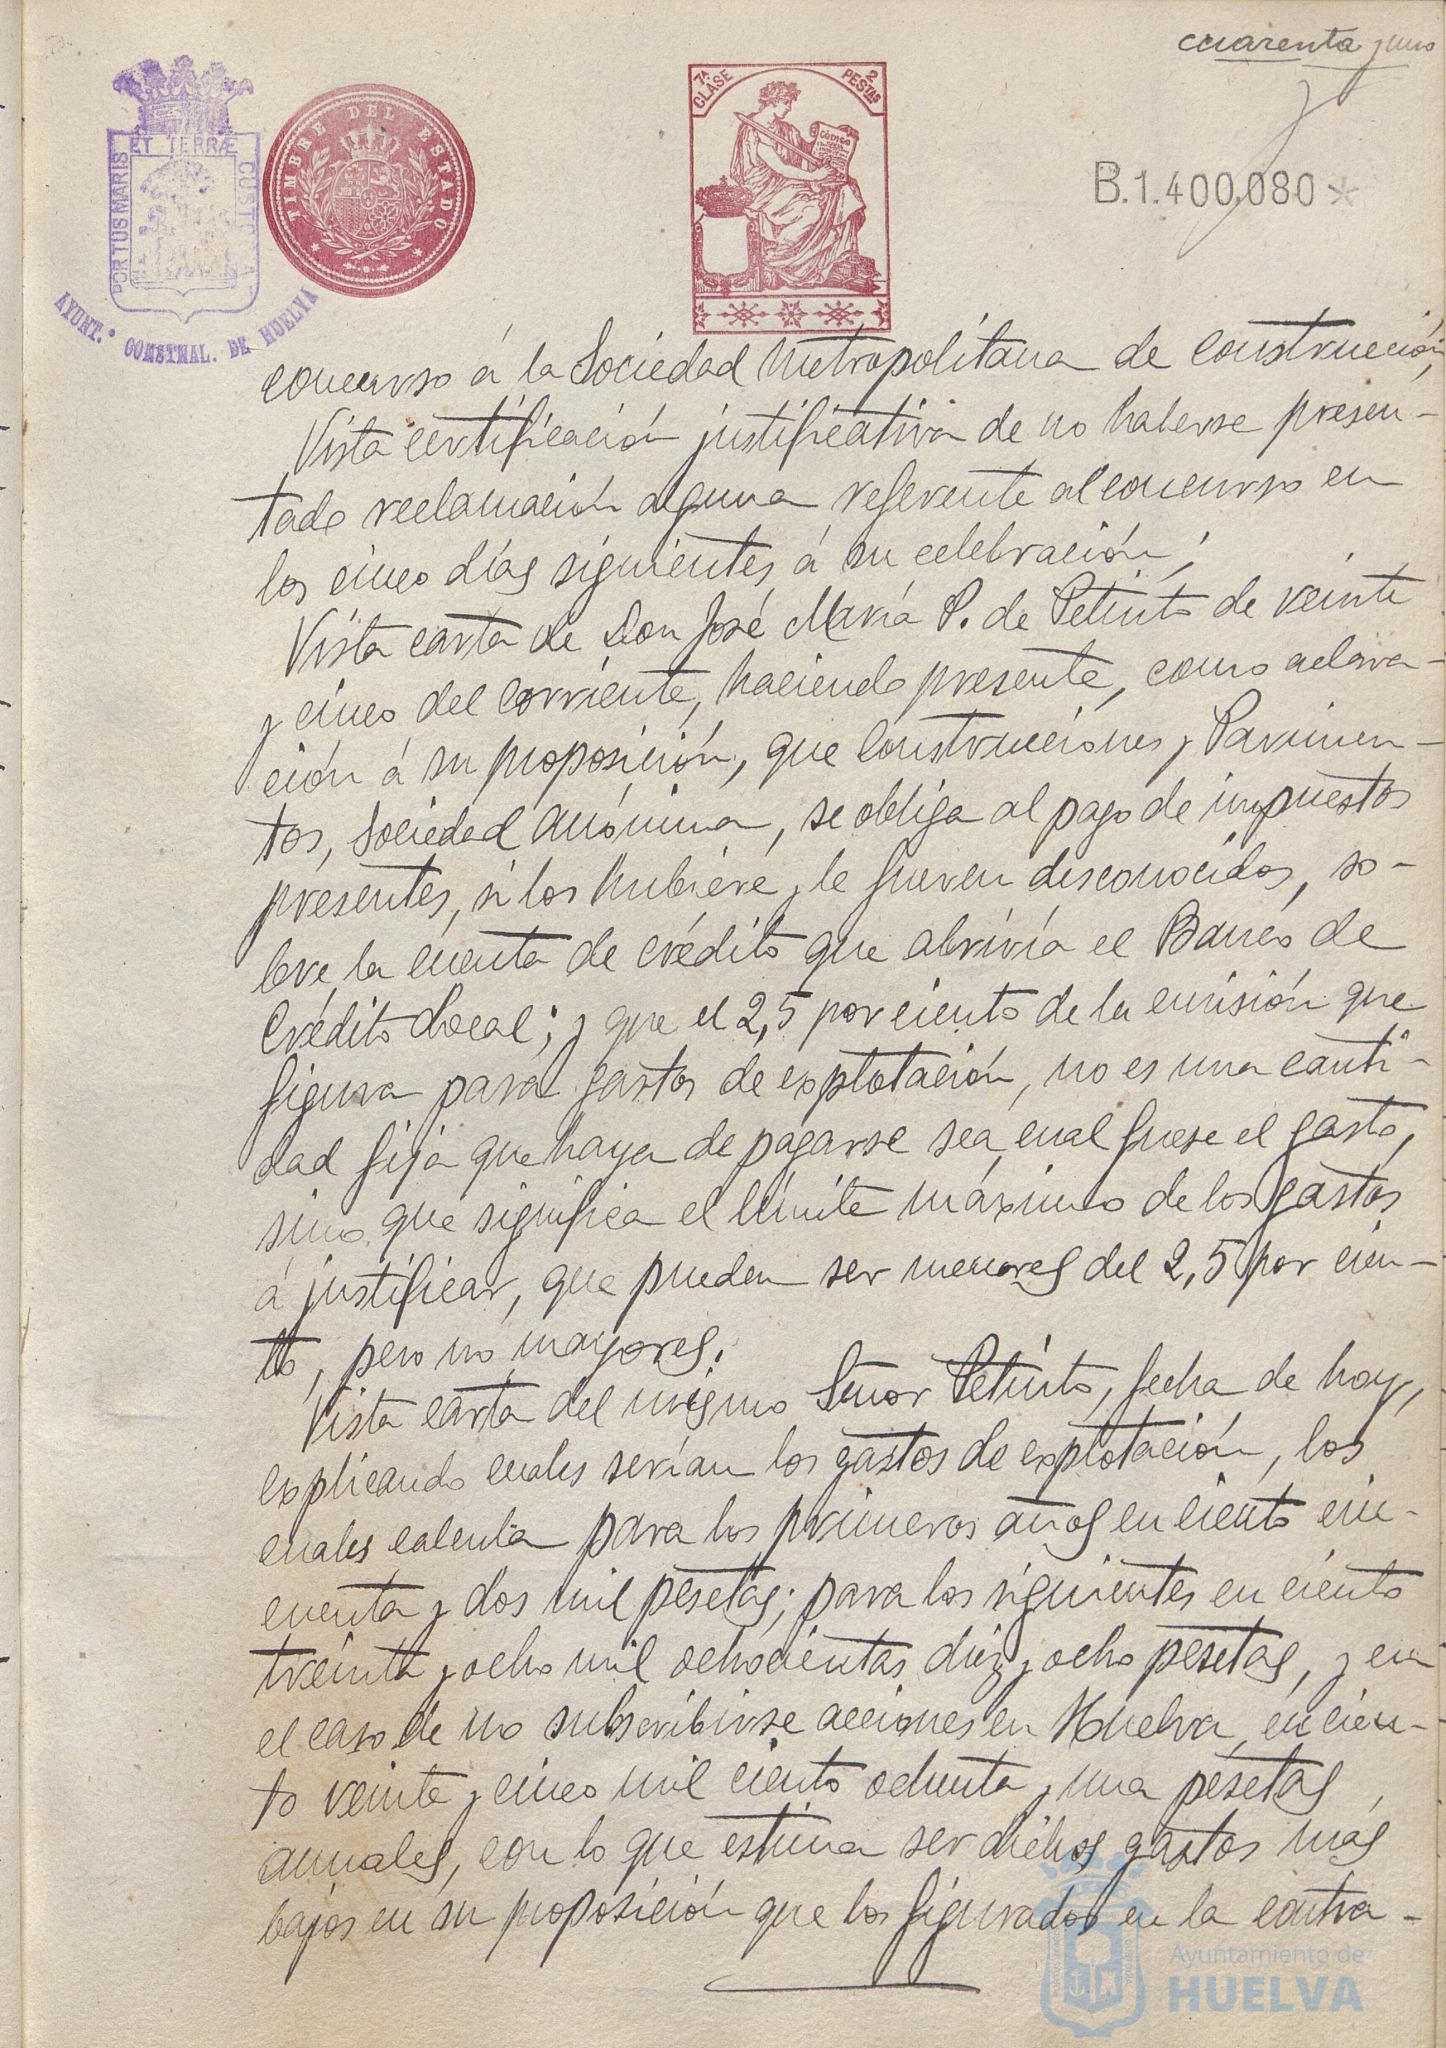 cuarenta y uno
ET TERRÆ
PORTUS MARIS
CUSTODIA
AYUNT.º CONSTNAL. DE HUELVA
TIMBRE DEL ESTADO
7ª CLASE
2 PESTAS
B.1.400,080*
concurso á la Sociedad Metropolitana de Construcción,
Vista certificación justificativa de no haberse presen-
tado reclamación alguna referente al concurso en
los cinco días siguientes á su celebración;
Vista carta de Don José María P. de Petinto de veinte
y cinco del corriente, haciendo presente, como aclara-
ción á su proposición, que Construcciones y Pavimen-
tos, Sociedad Anónima, se obliga al pago de impuestos
presentes, si los hubiere y le fueren desconocidos, so-
bre la cuenta de crédito que abriría el Banco de
Crédito Local; y que el 2,5 por ciento de la emisión que
figura para gastos de explotación, no es una canti-
dad fija que haya de pagarse sea cual fuese el gasto,
sino que significa el límite máximo de los gastos
á justificar, que pueden ser menores del 2,5 por cien-
to, pero no mayores.
Vista carta del mismo Señor Petinto, fecha de hoy,
explicando cuales serían los gastos de explotación, los
cuales calcula para los primeros años en ciento cin-
cuenta y dos mil pesetas; para los siguientes en ciento
treinta y ocho mil ochocientas diez y ocho pesetas, y en
el caso de no subscribirse acciones en Huelva, en cien-
to veinte y cinco mil ciento ochenta y una pesetas,
anuales, con lo que estima ser dichos gastos más
bajos en su proposición que los figurados en la contra-
Ayuntamiento de
HUELVA